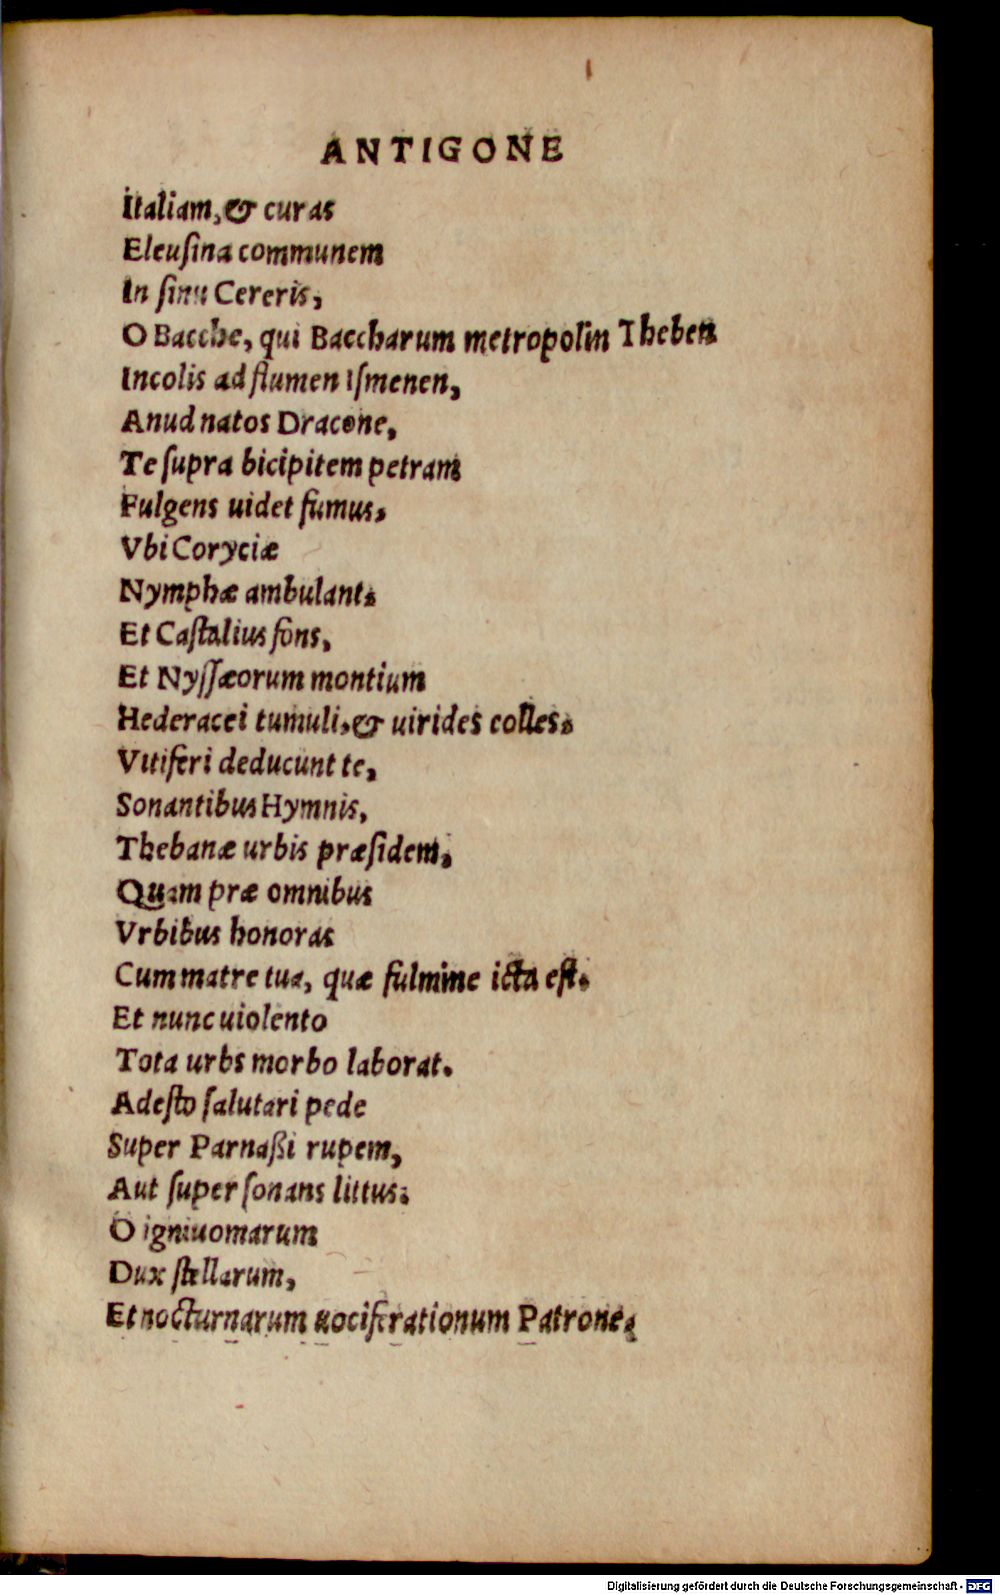 ANTIGONE
Italiam, & curas
Eleuſina communem
In ſinu Cereris,
O Bacche, qui Baccharum metropolin Theben
Incolis ad flumen Iſmenen,
Anud natos Dracone,
Te ſupra bicipitem petram
Fulgens uidet fumus,
Vbi Coryciæ
Nymphæ ambulant,
Et Caſtalius fons,
Et Nyſſæorum montium
Hederacei tumuli, & uirides colles,
Vitiferi deducunt te,
Sonantibus Hymnis,
Thebanæ urbis præſidem,
Quam præ omnibus
Vrbibus honoras
Cum matre tua, quæ fulmine icta eſt.
Et nunc uiolento
Tota urbs morbo laborat.
Adeſto ſalutari pede
Super Parnaßi rupem,
Aut ſuper ſonans littus.
O igniuomarum
Dux ſtellarum,
Et nocturnarum uociferationum Patrone,
Digitalisierung gefördert durch die Deutsche Forschungsgemeinschaft - DFG